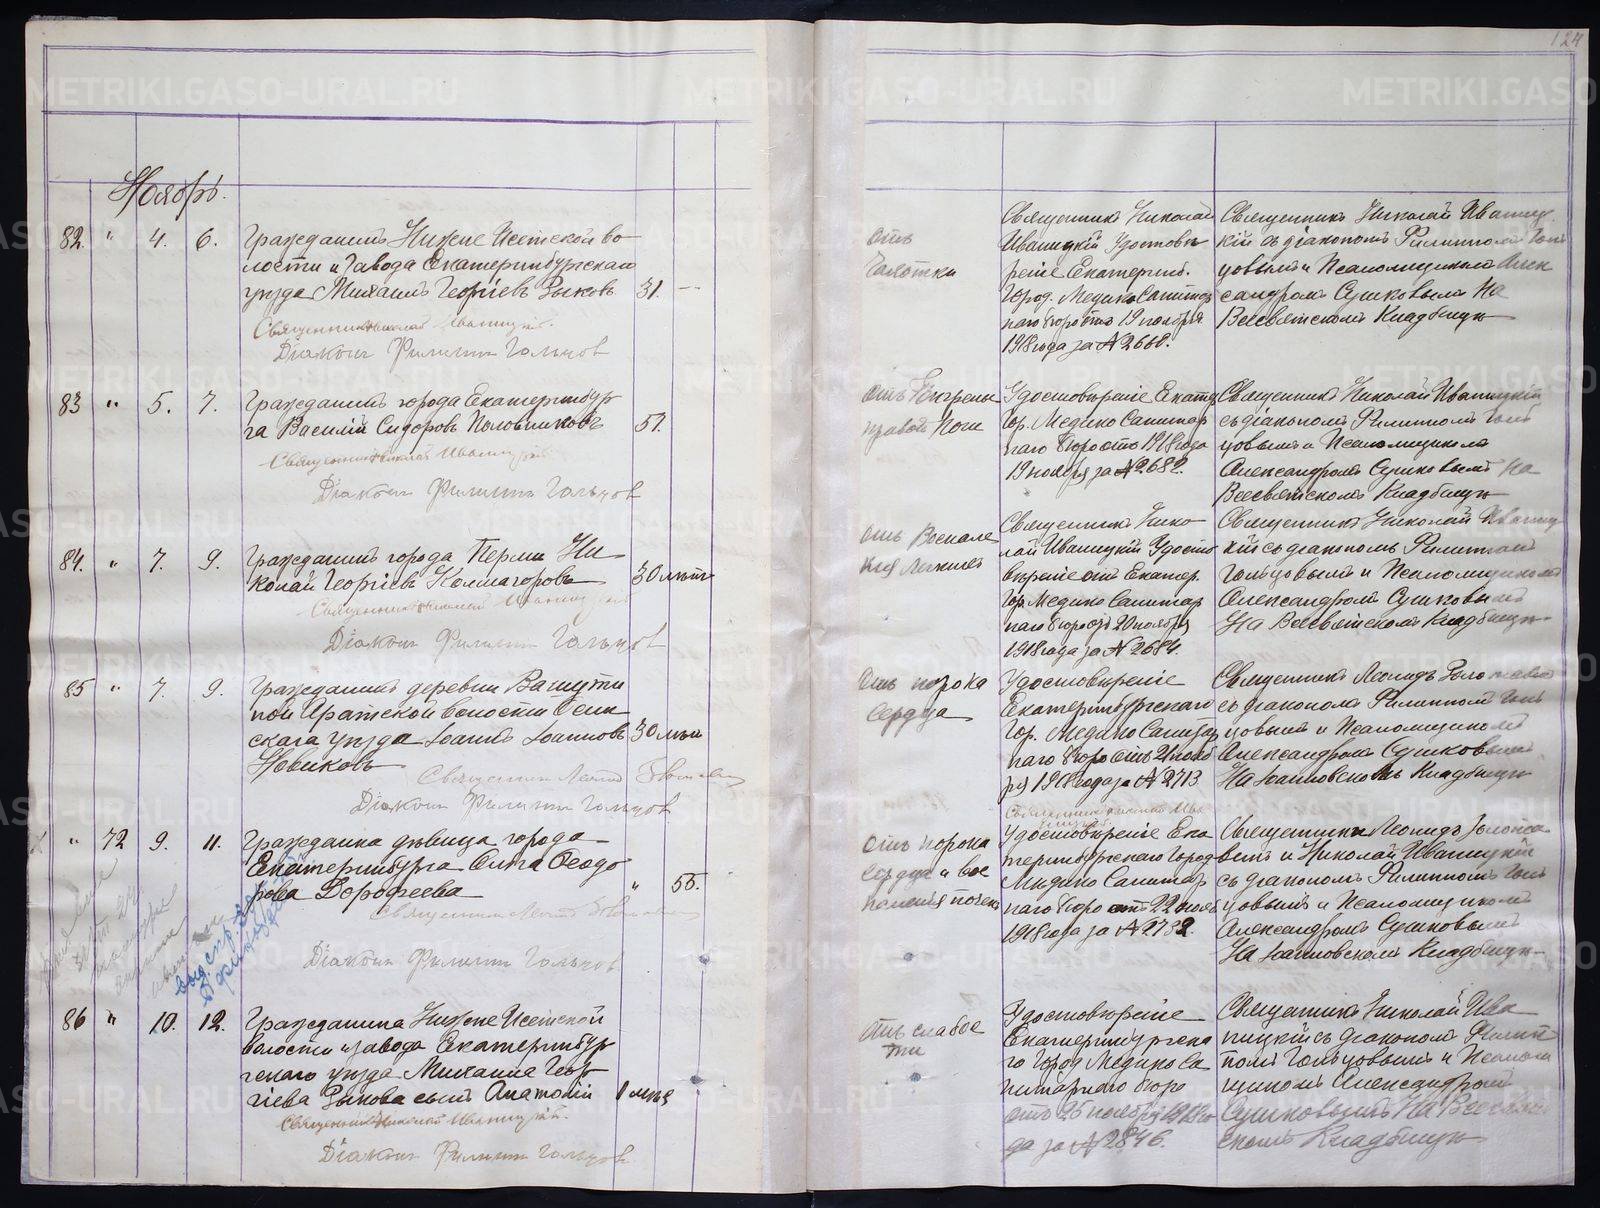 124
Ноябрь.
82. " 4. 6. Гражданинъ Нижне Исетской во
лости и завода Екатеринбургскаго
уѣзда Михаилъ Георгіевъ Зыковъ 31. -
Священникъ Николай Иваницкій.
Діаконъ Филиппъ Гольцов
отъ
Чахотки
Священникъ Николай
Иваницкій Удостовѣ
реніе Екатеринб.
Город. Медико Санитар
наго бюро отъ 19 ноября
1918 года за № 2660.
Священникъ Николай Иваниц
кій съ діакономъ Филиппомъ Голь
цовымъ и Псаломщикомъ Алек
сандромъ Сушковымъ На
Всесвятскомъ Кладбищѣ
83 " 5. 7. Гражданинъ города Екатеринбур
га Василій Сидоровъ Половниковъ 51.
Священникъ Николай Иваницкій
Діаконъ Филиппъ Гольцов
отъ Гангрены
правой Ноги
Удостовѣреніе Екате
Гор. Медико Санитар
наго бюро отъ 1918 года
19 ноября за № 2682.
Священникъ Николай Иваницкій
съ діакономъ Филиппомъ Голь
цовымъ и Псаломщикомъ
Александромъ Сушковымъ На
Всесвятскомъ Кладбищѣ
84. " 7. 9. Гражданинъ города Перми Ни
колай Георгіевъ Колмагоровъ 30 лѣтъ
Священникъ Николай Иваницкій
Діаконъ Филиппъ Гольцов
отъ Воспале
нія Легкихъ
Священникъ Нико
лай Иваницкій Удосто
вѣреніе отъ Екатер.
Гор. Медико Санитар
наго бюро отъ 20 ноября
1918 года за № 2684.
Священникъ Николай Иваниц
кій съ діакономъ Филиппомъ
Гольцовымъ и Псаломщикомъ
Александромъ Сушковымъ
На Всесвятскомъ Кладбищѣ
85 " 7. 9. Гражданинъ деревни
волости Осин
скаго уѣзда Іоаннъ Іоанновъ 30 лѣтъ
Новиковъ
Священникъ Леонид
Діаконъ Филиппъ Гольцов
отъ порока
Сердца
Удостовѣреніе
Екатеринбургскаго
Гор. Медико Санитар
наго бюро отъ 21 нояб
ря 1918 года за № 2713
Священникъ Леонидъ
съ діакономъ Филиппомъ Голь
цовымъ и Псаломщикомъ
Александромъ Сушковымъ
На Іоанновскомъ Кладбищѣ
" 72 9. 11. Гражданка дѣвица города
Екатеринбурга Ольга Ѳеодо
рова Дорофеева " 55.
Священникъ Леонид
Діаконъ Филиппъ Гольцов
отъ порока
Сердца и вос
паленія почекъ
Священникъ Николай Ива
ницкій.
Удостовѣреніе Ека
теринбургскаго Город
Медико Санитар
наго бюро отъ 22 нояб
1918 года за № 2732.
Священники Леонидъ
и Николай Иваницкій
съ діакономъ Филиппомъ Голь
цовымъ и Псаломщикомъ
Александромъ Сушковымъ
На Іоанновскомъ Кладбищѣ
86 " 10. 12. Гражданина Нижне Исетской
волости и завода Екатеринбур
гскаго уѣзда Михаила Геор
гіева Зыкова сынъ Анатолій 1 мѣс
Священникъ Николай Иваницкій.
Діаконъ Филиппъ Гольцов
Отъ слабос
ти
Удостовѣреніе
Екатеринбургска
го Город Медико Са
нитарнаго бюро
отъ 26 ноября 1918 го
да за № 2846.
Священникъ Николай Ива
ницкій съ діакономъ Филип
помъ Гольцовымъ и Псалом
щикомъ Александромъ
Сушковымъ На Всесвят
скомъ Кладбищѣ
METRIKI.GASO-URAL.RU